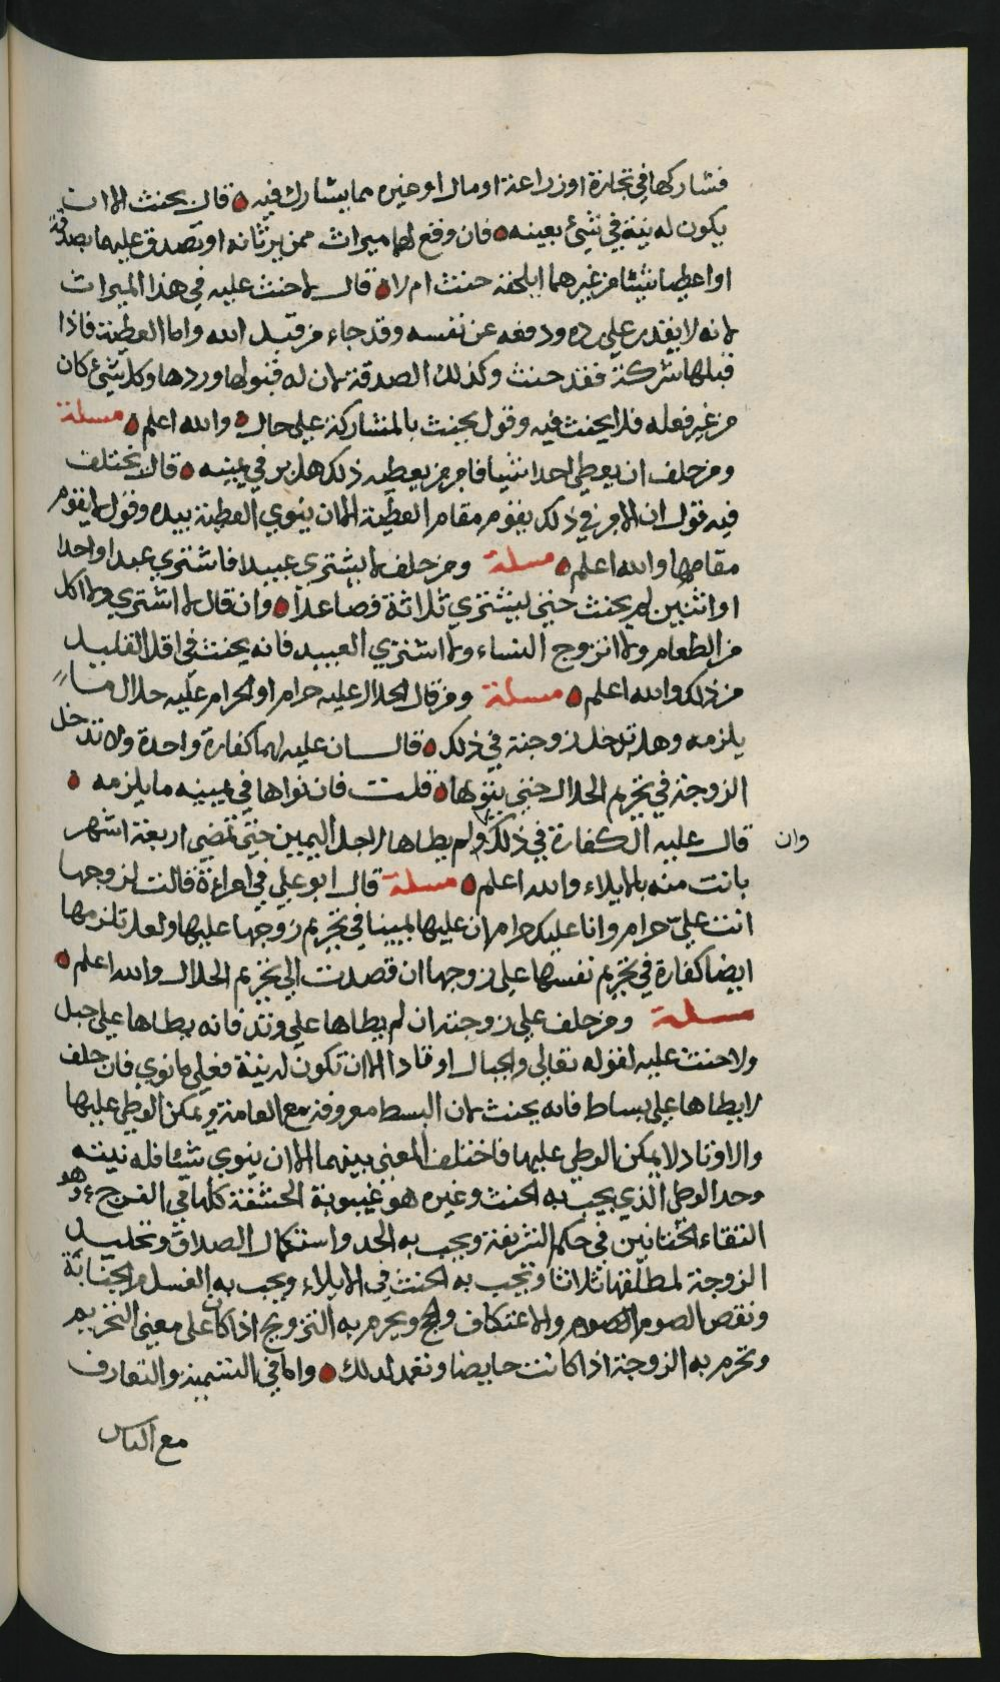 فشاركها في تجارة او زراعة او مال او غيره مما يشارك فيه قال يحنث الا ان
يكون له نية في شيء بعينه فان وقع لهما ميراث ممن يرثانه او تصدق عليهما بصدقة
او اعطيا شيئا من غيرهما ايلحقه حنث ام لا قال لا حنث عليه في هذا الميراث
لانه لا يقدر على رده ودفعه عن نفسه وقد جاء من قبل الله واما العطية فاذا
قبلها شركة فقد حنث وكذلك الصدقة لان له قبولها وردها وكل شيء كان
من غير فعله فلا يحنث فيه وقول يحنث بالمشاركة على حال والله اعلم مسلة
ومن حلف ان يعطي احدا شيا فامر من يعطيه ذلك هل بر في يمينه قال يختلف
فيه قول ان الامر في ذلك يقوم مقام العطية الا ان ينوي العطية بيده وقول لا يقوم
مقامها والله اعلم مسلة ومن حلف لا يشتري عبيدا فاشتري عبدا واحدا
او اثنين لم يحنث حتى يشتري ثلاثة فصاعدا وان قال لا اشتري ولا اكل
من الطعام ولا اتزوج النساء ولا اشتري العبيد فانه يحنث في اقل القليل
من ذلك والله اعلم مسلة ومن قال الحلال عليه حرام او الحرام عليه حلال ما
يلزمه وهل تدخل زوجته في ذلك قال ان عليه لهما كفارة واحدة ولا تدخل
الزوجة في تحريم الحلال حتى ينويها قلت فان نواها في يمينه ما يلزمه
قال عليه الكفارة في ذلك وان لم يطاها لاجل اليمين حتى تمضي اربعة اشهر
بانت منه بالايلاء والله اعلم مسلة قال ابو علي في امراءة قالت لزوجها
انت علي حرام وانا عليك حرام ان عليها يمينا في تحريم زوجها عليها ولعل تلزمها
ايضا كفارة في تحريم نفسها على زوجها ان قصدت الي تحريم الحلال والله اعلم
مسلة ومن حلف على زوجته ان لم يطاها على وتد فانه يطاها على جبل
ولا حنث عليه لقوله تعالى والجبال اوتادا الا ان تكون له نية فعلى ما نوي فان حلف
لا يطاها على بساط فانه يحنث لان البسط معروفة مع العامة ويمكن الوطي عليها
والاوتاد لا يمكن الوطي عليها فاختلف المعنى بينهما الا ان ينوي شيئا فله نيته
وحد الوطي الذي يجب به الحنث وغيره هو غيبوبة الحشفة كلها في الفرج وهو
التقاء الختانين في حكم الشريعة ويجب به الحد واستكمال الصداق وتحليل
الزوجة لمطلقها ثلاثا وتجب به الحنث في الايلاء ويجب به الغسل من الجنابة
ونقص الصوم والاعتكاف والحج ويحرم به التزويج اذا كان على معنى التحريم
وتحرم به الزوجة اذا كانت حايضا وتعمد لذلك واما في التسمية والتعارف
مع الناس